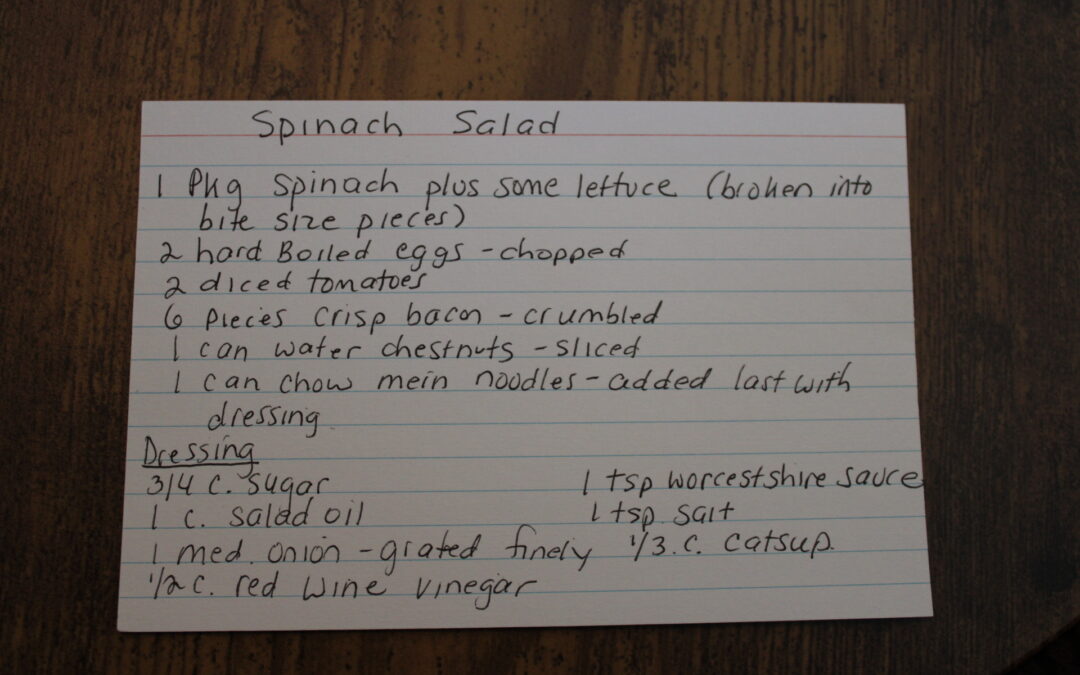 Spinach Salad
1 Pkg Spinach plus some lettuce (broken into
bite size pieces)
2 hard Boiled eggs - chopped
2 diced tomatoes
6 pieces crisp bacon - crumbled
1 can water chestnuts - sliced
1 can chow mein noodles - added last with
dressing
Dressing
3/4 c. sugar
1 c. salad oil
1 med. onion - grated finely
1/2 c. red wine vinegar
1 tsp worcestshire sauce
1 tsp. salt
1/3. c. catsup.